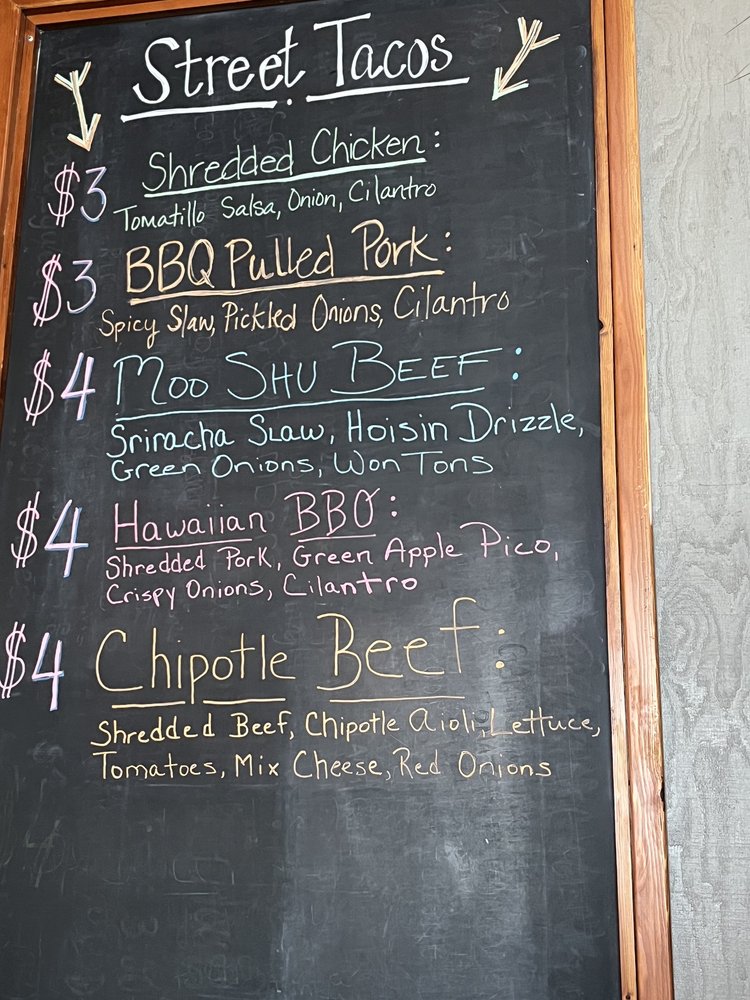 Street Tacos
$3 Shredded Chicken:
Tomatillo Salsa, Onion, Cilantro
$3 BBQ Pulled Pork:
Spicy Slaw, Pickled Onions, Cilantro
$4 Moo Shu Beef:
Sriracha Slaw, Hoisin Drizzle,
Green Onions, Won Tons
$4 Hawaiian BBQ:
Shredded Pork, Green Apple Pico,
Crispy Onions, Cilantro
$4 Chipotle Beef:
Shredded Beef, Chipotle Aioli, Lettuce,
Tomatoes, Mix Cheese, Red Onions